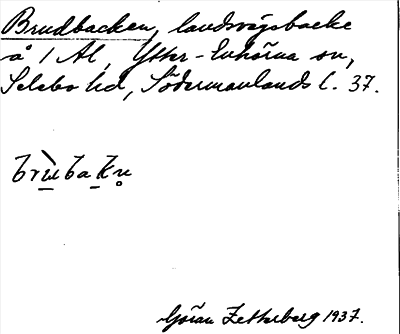 Brudbacken, landsvägsbacke
å 1 Al, Ytter-Enhörna sn,
Selebo hd, Södermanlands l. 37.
brùbakn̥
Göran Zetterberg 1937.